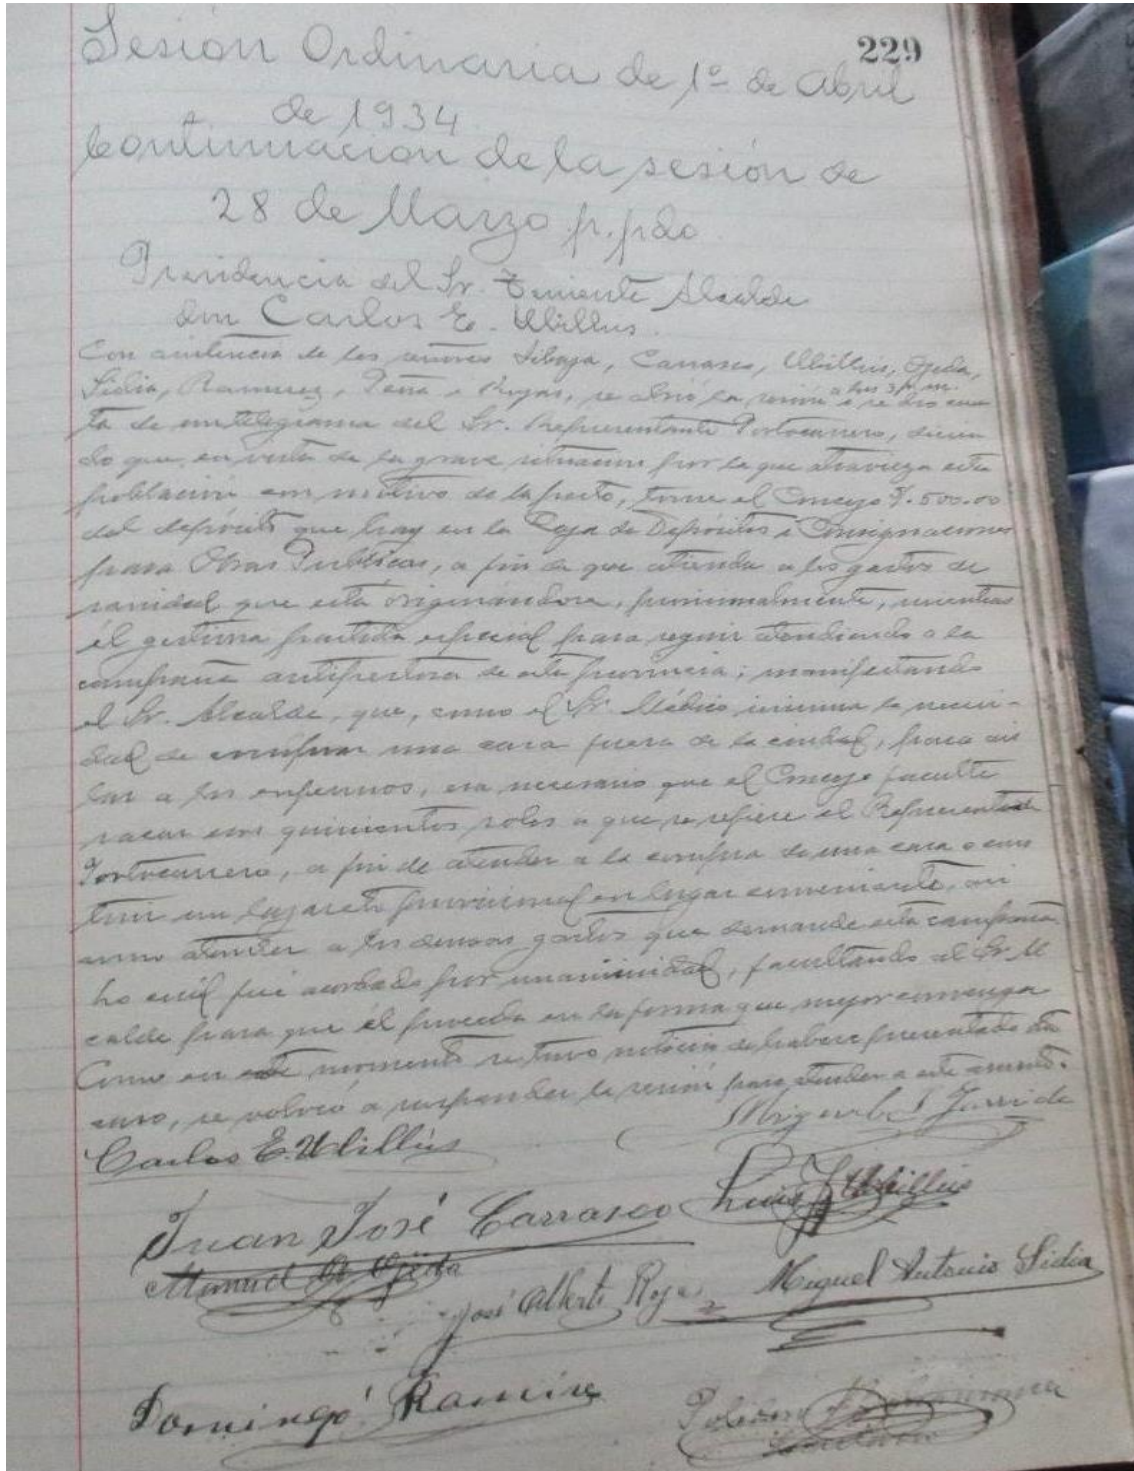 229
Sesión Ordinaria de 1º de Abril
de 1934
Continuacion de la sesión de
28 de Marzo p. pdo.
Presidencia del Sr. Teniente Alcalde
don Carlos E. Ubillus.
Con asistencia de los señores Sibaja, Carrasco, Ubillus, Ojeda,
Sidia, Ramirez, Peña i Rojas, se abrió la sesión a las 3 p. m. i se dio cuen
ta de un telegrama del Sr. Representante Portocarrero, dicien
do que, en vista de la grave situacion por la que atravieza esta
poblacion con motivo de la peste, tome el Concejo $. 500.00
del depósito que hay en la Caja de Depósitos i Consignaciones
para Obras Publicas, a fin de que atienda a los gastos de
sanidad que está originándose, mientras
él gestiona partida especial para seguir atendiendo a la
campaña antipestosa de esta provincia; manifestando
el Sr. Alcalde, que, como el Sr. Médico la necesi-
dad de comprar una casa fuera de la ciudad, para ais
lar a los enfermos, era necesario que el Concejo faculte
sacar esos quinientos soles a que se refiere el Representante
Portocarrero, a fin de atender a la compra de una casa o cons
truir un lazareto provisional en lugar conveniente, asi
como atender a los demas gastos que demande esta campaña.
Lo cuál fué acordado por unanimidad, facultando al Sr. Al
calde para que él proceda en la forma que mejor convenga
Como en este momento se tuvo noticia de haberse presentado otro
caso, se volvió a suspender la sesión para atender a este asunto.
Carlos E. Ubillús
Miguel
Juan José Carrasco
Luis Ubillus
Manuel Ojeda
José Alberto Rojas
Miguel Antonio Sidia
Domingo Ramirez